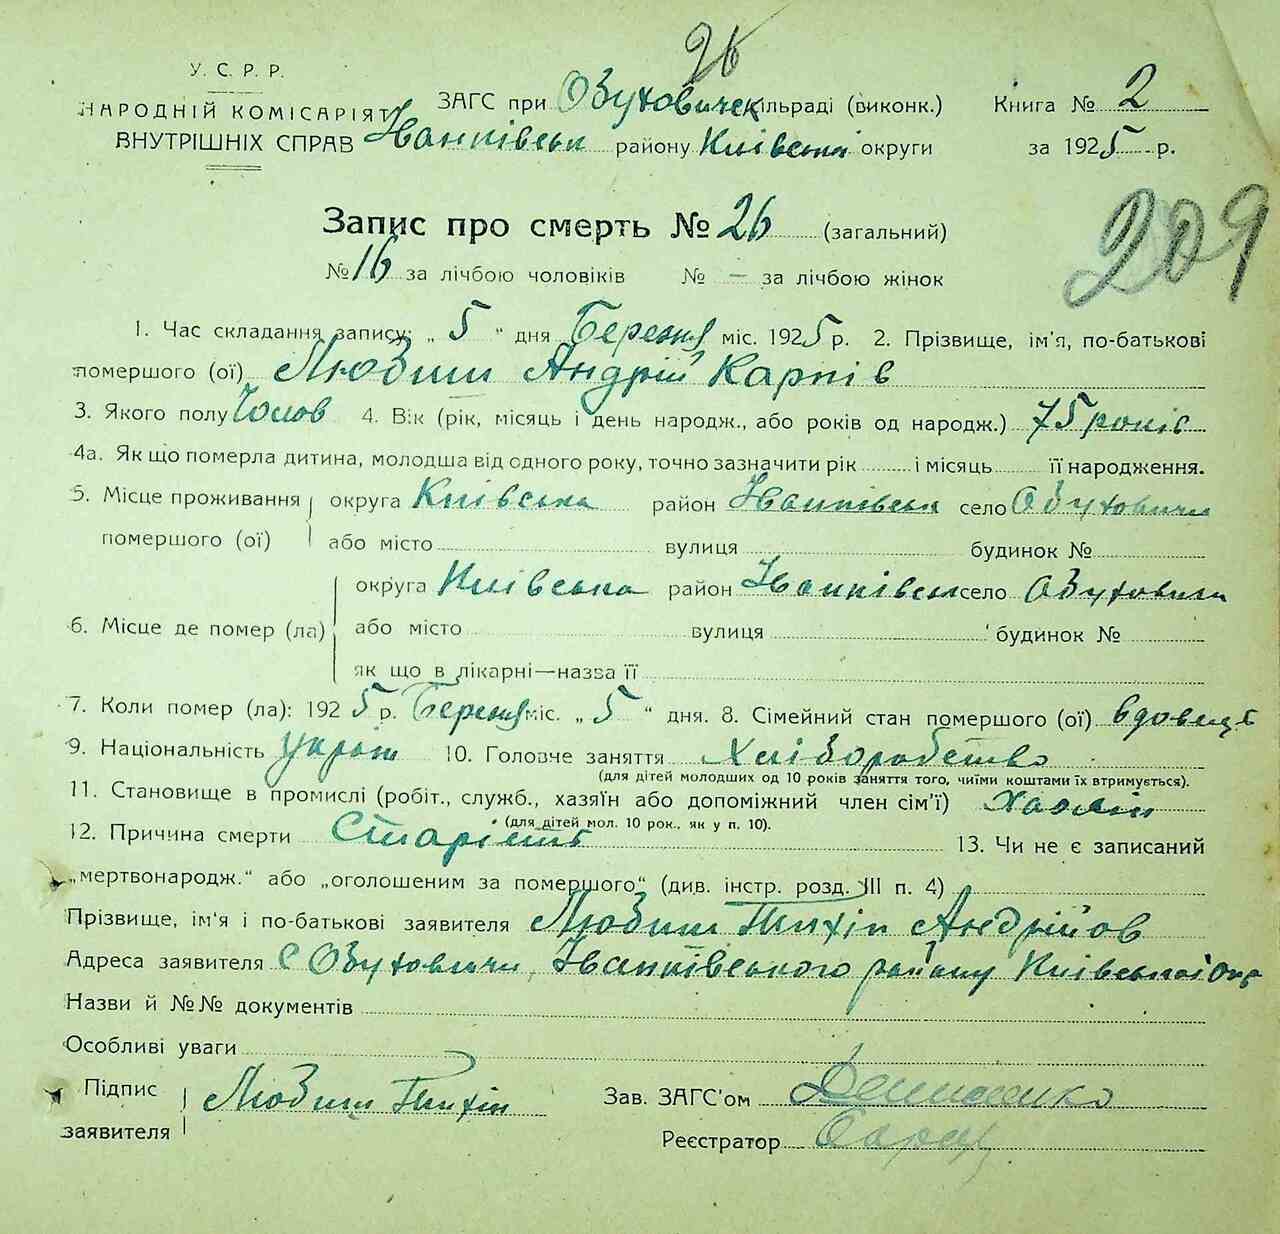 26
У. С. Р. Р.
НАРОДНІЙ КОМІСАРІЯТ
ВНУТРІШНІХ СПРАВ
ЗАГС при Обуховичск сільраді (виконк.) Книга № 2
Іванківськ району Київськ округи за 1925 р.
209
Запис про смерть № 26 (загальний)
№ 16 за лічбою чоловіків № — за лічбою жінок
1. Час складання запису: „ 5 “ дня Березня міс. 1925 р. 2. Прізвище, ім'я, по-батькові
помершого (ої) Любиш Андрій Карпів
3. Якого полу Чолов 4. Вік (рік, місяць і день народж., або років од народж.) 75 років
4а. Як що померла дитина, молодша від одного року, точно зазначити рік і місяць її народження.
5. Місце проживання округа Київська район Іванківськ село Обуховичи
помершого (ої) або місто вулиця будинок №
округа Київська район Іванківськ село Обуховичи
6. Місце де помер (ла) або місто вулиця будинок №
як що в лікарні—назва її
7. Коли помер (ла): 1925 р. Березня міс. „ 5 “ дня. 8. Сімейний стан помершого (ої) вдовець
9. Національність україн 10. Головне заняття Хліборобство
(для дітей молодших од 10 років заняття того, чиїми коштами їх втримується).
11. Становище в промислі (робіт., служб., хазяїн або допоміжний член сім'ї) хазяїн
(для дітей мол. 10 рок., як у п. 10).
12. Причина смерти Старість 13. Чи не є записаний
„мертвонародж.“ або „оголошеним за помершого“ (див. інстр. розд. III п. 4)
Прізвище, ім'я і по-батькові заявителя Любиш Тихін Андрійов
Адреса заявителя с Обуховичи, Іванківського району Київської Окр
Назви й №№ документів
Особливі уваги
Підпис заявителя Любиш Тихін Зав. ЗАГС'ом Денисенко
Реєстратор